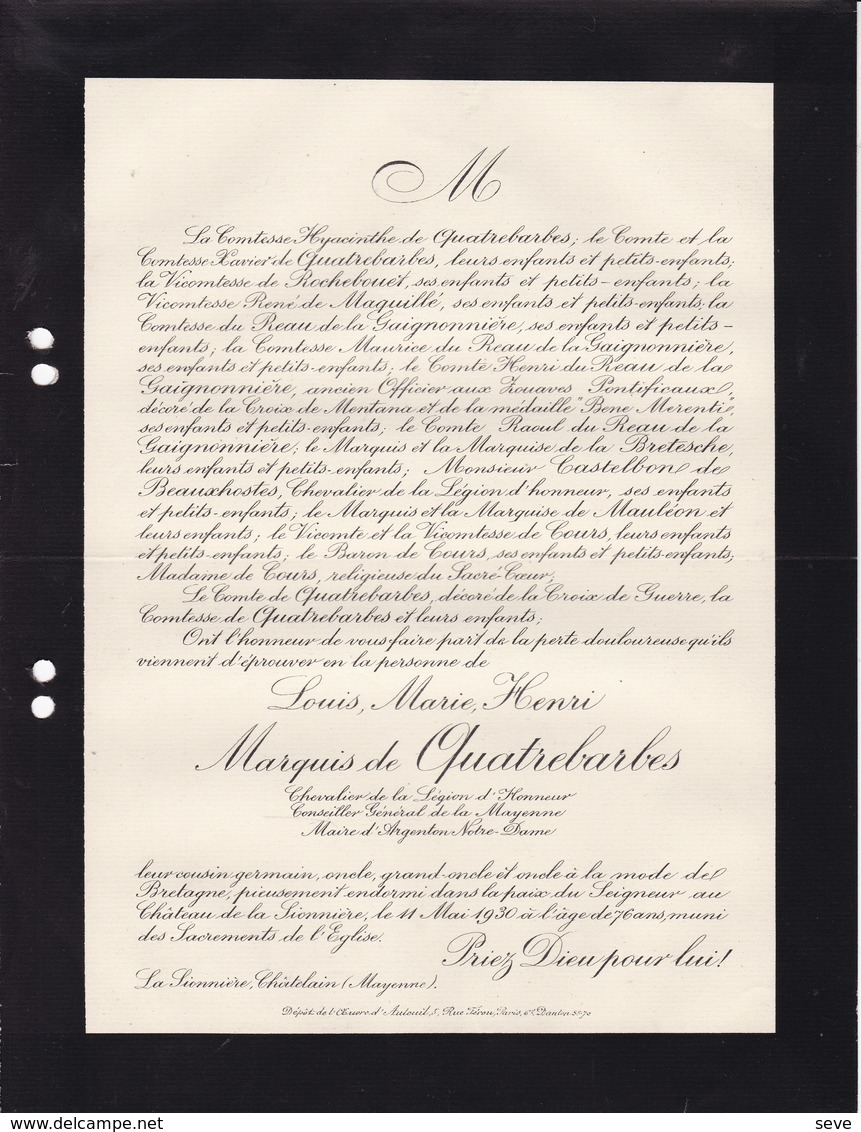 M
La Comtesse Hyacinthe de Quatrebarbes; le Comte et la
Comtesse Xavier de Quatrebarbes, leurs enfants et petits-enfants;
la Vicomtesse de Rochebouët, ses enfants et petits-enfants; la
Vicomtesse René de Maquillé, ses enfants et petits-enfants; la
Comtesse du Reau de la Gaignonnière, ses enfants et petits-
enfants; la Comtesse Maurice du Reau de la Gaignonnière,
ses enfants et petits-enfants; le Comte Henri du Reau de la
Gaignonnière, ancien Officier aux Zouaves Pontificaux,
décoré de la Croix de Mentana et de la médaille "Bene Merenti",
ses enfants et petits-enfants; le Comte Raoul du Reau de la
Gaignonnière; le Marquis et la Marquise de la Bretesche,
leurs enfants et petits-enfants; Monsieur Castelbon de
Beauxhostes, Chevalier de la Légion d'honneur, ses enfants
et petits-enfants; le Marquis et la Marquise de Mauléon et
leurs enfants; le Vicomte et la Vicomtesse de Cours, leurs enfants
et petits-enfants; le Baron de Cours, ses enfants et petits-enfants;
Madame de Cours, religieuse du Sacré-Cœur;
Le Comte de Quatrebarbes, décoré de la Croix de Guerre, la
Comtesse de Quatrebarbes et leurs enfants;
Ont l'honneur de vous faire part de la perte douloureuse qu'ils
viennent d'éprouver en la personne de
Louis, Marie, Henri
Marquis de Quatrebarbes
Chevalier de la Légion d'Honneur
Conseiller Général de la Mayenne
Maire d'Argenton Notre-Dame
leur cousin germain, oncle, grand-oncle et oncle à la mode de
Bretagne, pieusement endormi dans la paix du Seigneur au
Château de la Sionnière, le 11 Mai 1930 à l'âge de 76 ans, muni
des Sacrements de l'Eglise.
Priez Dieu pour lui!
La Sionnière, Châtelain (Mayenne).
Dépôt de l'Œuvre d'Auteuil, 5, Rue Férou, Paris, 6e, Danton 58-70
© delcampe.net
seve